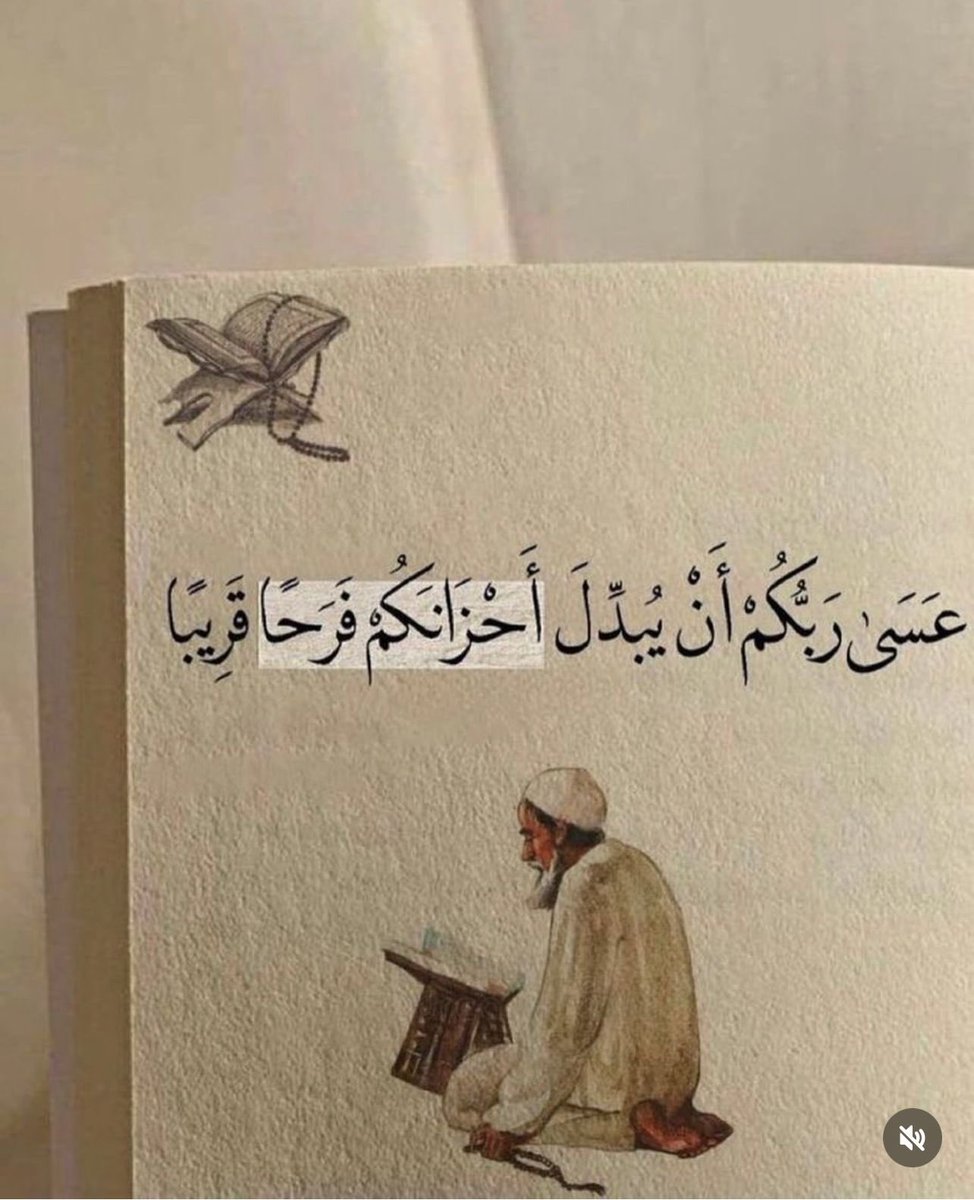 عَسَىٰ رَبُّكُمْ أَنْ يُبَدِّلَ أَحْزَانَكُمْ فَرَحًا قَرِيبًا